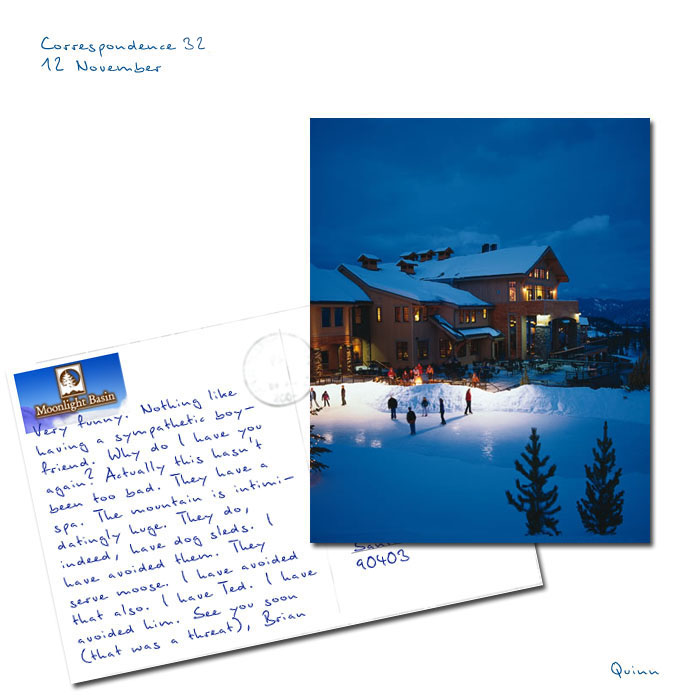 Correspondence 32
12 November
Moonlight Basin
Very funny. Nothing like
having a sympathetic boy-
friend. Why do I have you
again? Actually this hasn't
been too bad. They have a
spa. The mountain is intimi-
datingly huge. They do,
indeed, have dog sleds. I
have avoided them. They
serve moose. I have avoided
that also. I have Ted. I have
avoided him. See you soon
(that was a threat), Brian
90403
Quinn